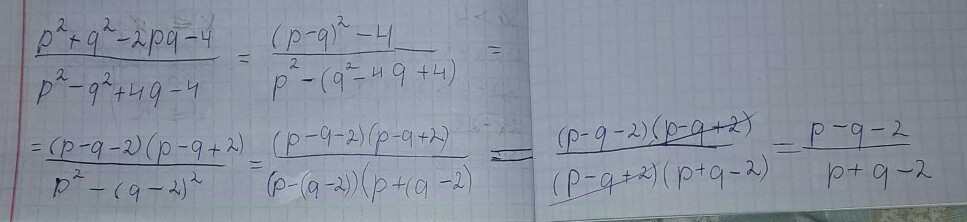 (p²+q²-2pq-4)/(p²-q²+4q-4) = ((p-q)²-4)/(p²-(q²-4q+4)) =
= ((p-q-2)(p-q+2))/(p²-(q-2)²) = ((p-q-2)(p-q+2))/((p-(q-2))(p+(q-2)) = ((p-q-2)(p-q+2))/((p-q+2)(p+q-2)) = (p-q-2)/(p+q-2)